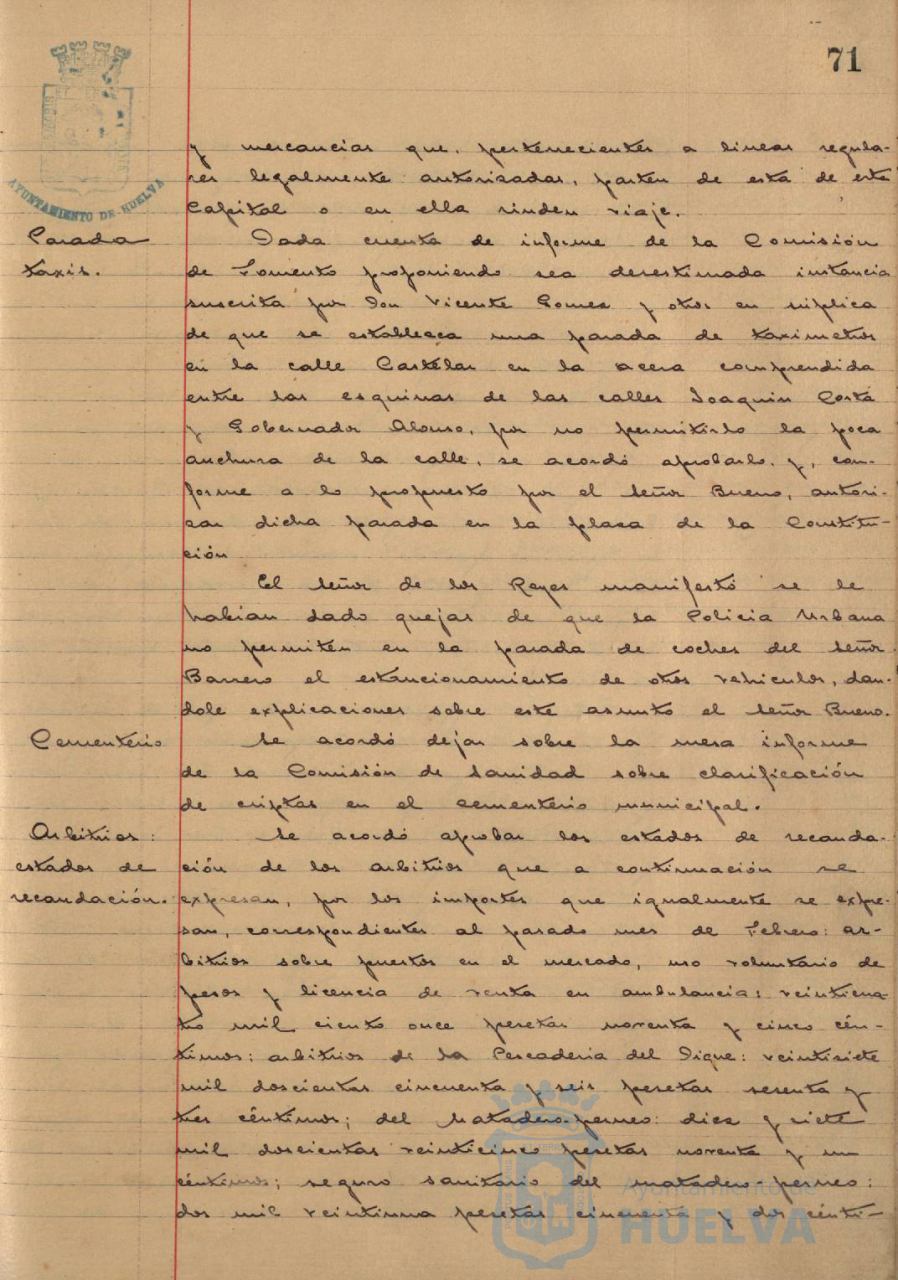 71
AYUNTAMIENTO DE HUELVA
y mercancias que, pertenecientes a lineas regula-
res legalmente autorizadas, parten de esta de esta
Capital o en ella rinden viaje.
Parada
taxis.
Dada cuenta de informe de la Comisión
de Fomento proponiendo sea desestimada instancia
suscrita por Don Vicente Gomez y otros en súplica
de que se establezca una parada de taximetros
en la calle Castelar en la acera comprendida
entre las esquinas de las calles Joaquin Costa
y Gobernador Alonso, por no permitirlo la poca
anchura de la calle, se acordó aprobarlo, y, con-
forme a lo propuesto por el Señor Bueno, autori-
zar dicha parada en la plaza de la Constitu-
ción
El Señor de los Reyes manifestó se le
habian dado quejas de que la Policia Urbana
no permiten en la parada de coches del Señor
Barrero el estancionamiento de otros vehiculos, dan-
dole explicaciones sobre este asunto el Señor Bueno.
Cementerio
Se acordó dejar sobre la mesa informe
de la Comisión de Sanidad sobre clasificación
de criptas en el cementerio municipal.
Arbitrios:
estados de
recaudación.
Se acordó aprobar los estados de recauda-
ción de los arbitrios que a continuación se
expresan, por los importes que igualmente se expre-
san, correspondientes al pasado mes de Febrero: ar-
bitrios sobre puestos en el mercado, uso voluntario de
pesos y licencia de venta en ambulancia: veinticua-
tro mil ciento once pesetas noventa y cinco cén-
timos; arbitrios de la Pescaderia del Dique: veintisiete
mil doscientas cincuenta y seis pesetas sesenta y
tres céntimos; del Matadero-perneo: diez y siete
mil doscientas veinticinco pesetas noventa y un
céntimos; seguro sanitario del matadero-perneo:
dos mil veintiuna pesetas cincuenta y dos cénti-
Ayuntamiento de
HUELVA